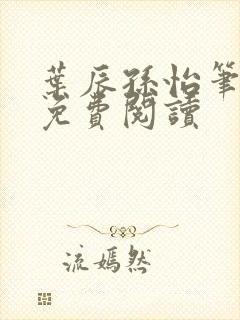 葉辰孫怡筆
免費閱讀
流嫣然